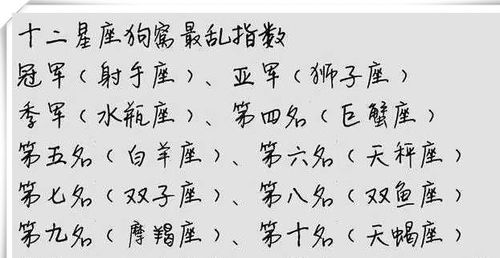 十二星座狗窝最乱指数
冠军（射手座）、亚军（狮子座）
季军（水瓶座）、第四名（巨蟹座）
第五名（白羊座）、第六名（天秤座）
第七名（双子座）、第八名（双鱼座）
第九名（摩羯座）、第十名（天蝎座）